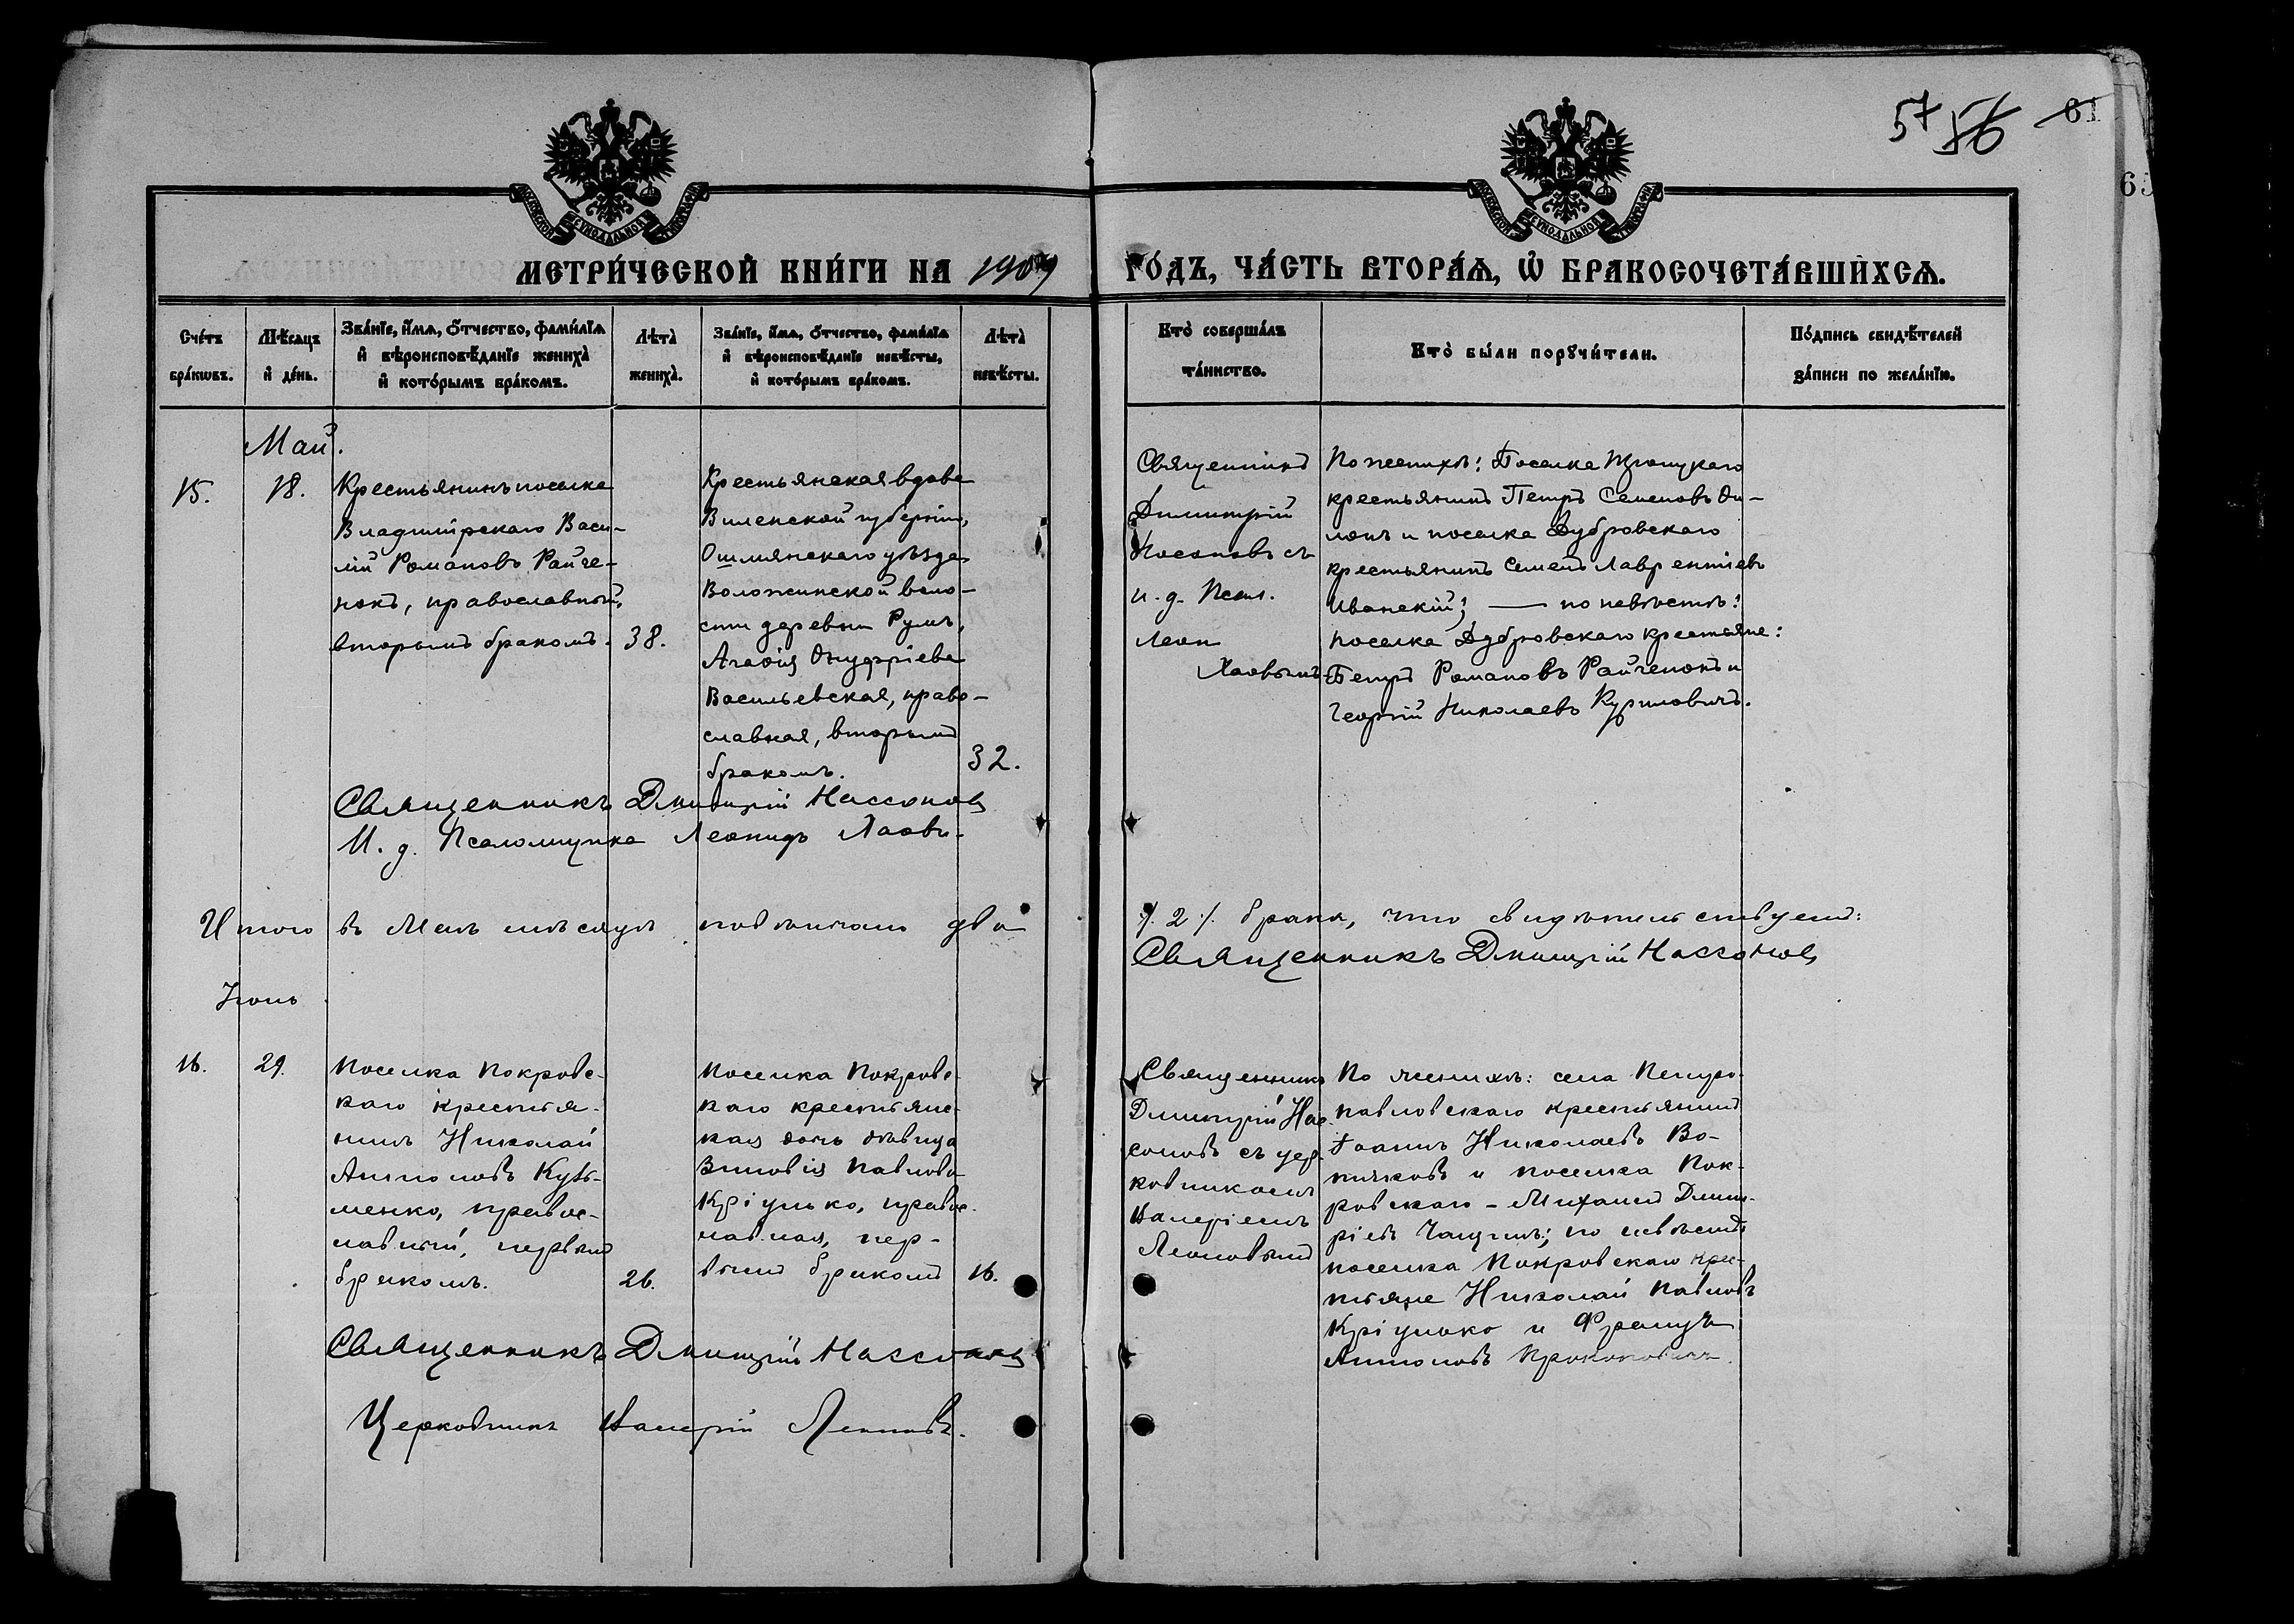 57 56 61
65
МОСКОВСКОЙ СѴНОДАЛЬНОЙ ТИПОГРАФІИ
МОСКОВСКОЙ СѴНОДАЛЬНОЙ ТИПОГРАФІИ
МЕТРИ́ЧЕСКОЙ КНИ́ГИ НА 1909 ГО́ДЪ, ЧА́СТЬ ВТОРА́Ѧ, Ѡ҆ БРАКОСОЧЕТА́ВШИХСѦ.
Сче́тъ
бра́кѡвъ.
Мѣ́сѧцъ
и҆ де́нь.
Зва́нїе, и҆́мѧ, ѻ҆́тчество, фами́лїѧ
и҆ вѣроисповѣ́данїе жениха̀
и҆ кото́рымъ бра́комъ.
Лѣта̀
жениха̀.
Зва́нїе, и҆́мѧ, ѻ҆́тчество, фами́лїѧ
и҆ вѣроисповѣ́данїе невѣ́сты,
и҆ кото́рымъ бра́комъ.
Лѣта̀
невѣ́сты.
Кто̀ соверша́лъ
та́инство.
Кто̀ бы́ли порꙋчи́тели.
По́дпись свидѣ́телей
за́писи по жела́нїю.
Май.
15.
18.
Крестьянинъ поселка
Владимірскаго Васи-
лій Романовъ Райче-
нокъ, православный,
вторымъ бракомъ.
38.
Крестьянская вдова
Виленской губерніи,
Ошмянскаго уѣзда
Воложинской воло-
сти деревни Румъ,
Агафія Онуфріева
Васильевская, право-
славная, вторымъ
бракомъ.
32.
Священникъ
Димитрій
Носоновъ съ
и. д. Псал.
Леон
Лаовымъ
По женихѣ: Поселка Троицкаго
крестьянинъ Петръ Семеновъ
и поселка Дубровскаго
крестьянинъ Семенъ Лаврентіевъ
Иванскій; — по невѣстѣ:
поселка Дубровскаго крестьяне:
Петръ Романовъ Райченокъ и
Георгій Николаевъ Куриловичъ.
Священникъ Дмитрій Нассоновъ
И. д. Псаломщика Леонидъ Лаовъ.
Итого въ Маѣ мѣсяцѣ повѣнчано два
/. 2 /. брака, что свидѣтельствуетъ:
Священникъ Дмитрій Нассоновъ
Іюнь
16.
29.
Поселка Покровс-
каго крестья-
нинъ Николай
Антоновъ Кузь-
менко, правос-
лавный, первымъ
бракомъ.
26.
Поселка Покровс-
каго крестьянс-
кая дочь дѣвица
Зиновія Павлова
Кріулько, правос-
лавная, пер-
вымъ бракомъ
16.
Священникъ
Дмитрій Нас-
соновъ съ цер-
ковникомъ
Валеріемъ
Леоновымъ
По женихѣ: села Петро-
павловскаго крестьянинъ
Іоаннъ Николаевъ Во-
и поселка Пок-
ровскаго - Михаилъ Дмит-
ріевъ по невѣстѣ
поселка Покровскаго крес-
тьяне Николай Павловъ
Кріулько и Францъ
Антоновъ Прокоповичъ.
Священникъ Дмитрій Нассоновъ
Церковникъ Валерій Леоновъ.